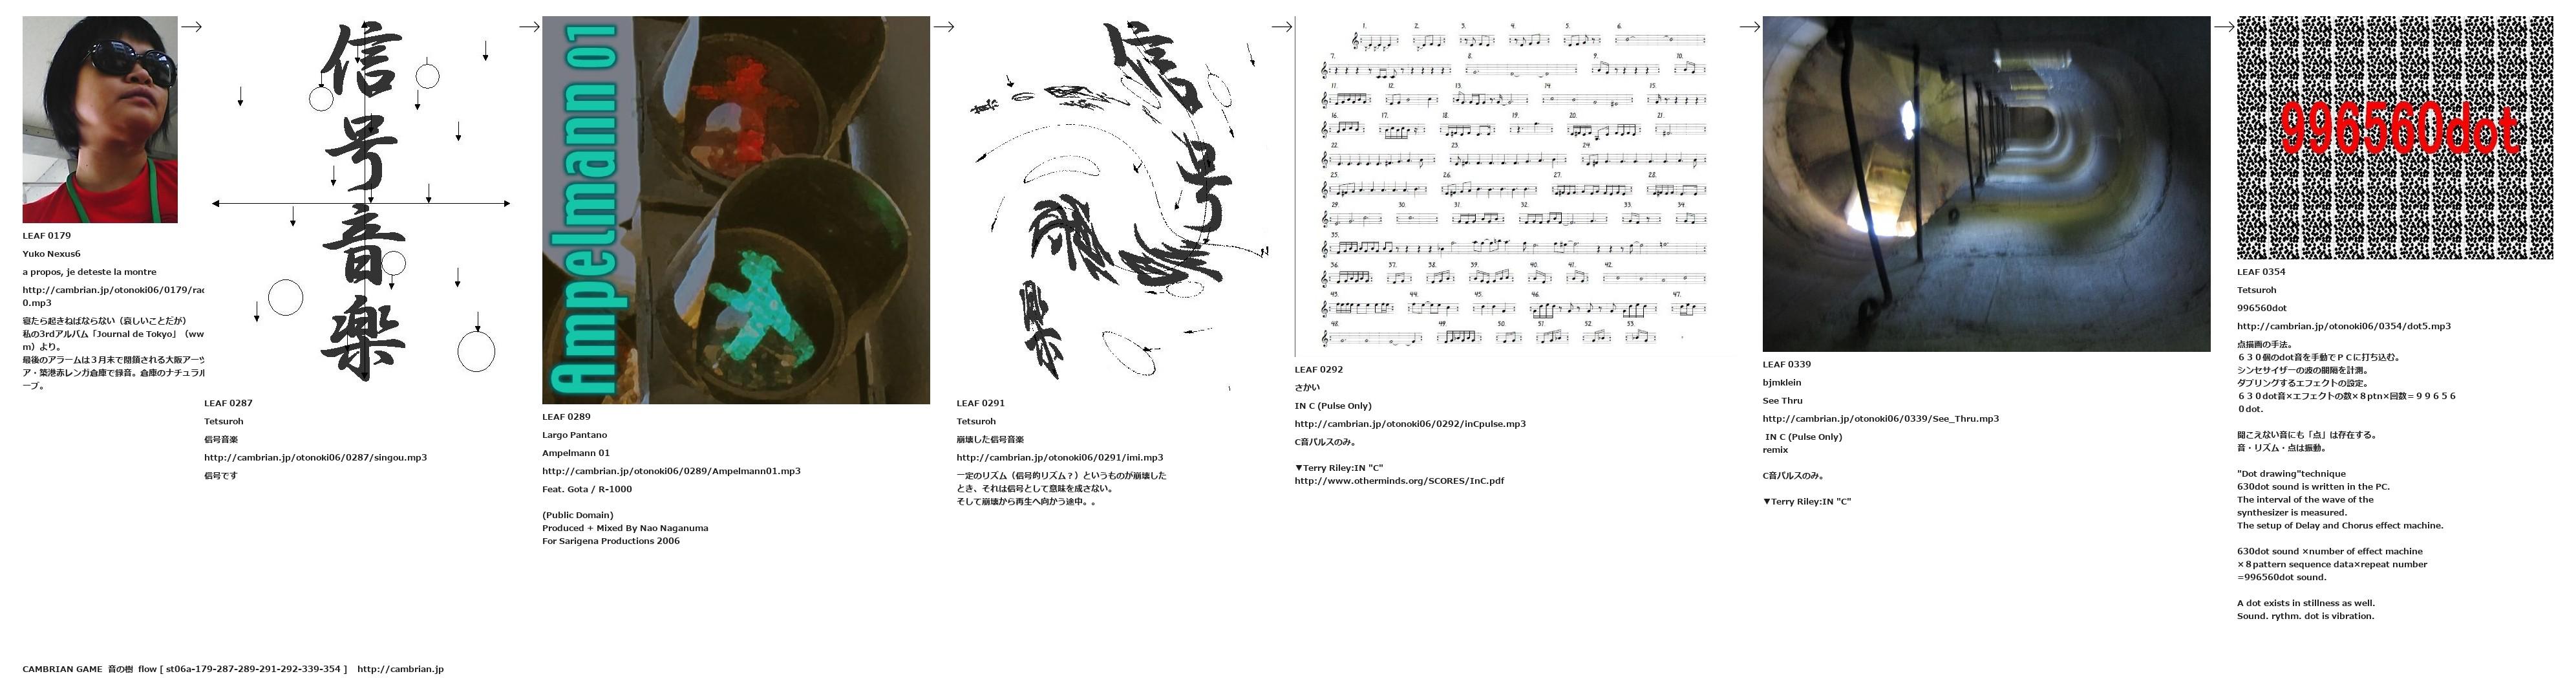 LEAF 0179
Yuko Nexus6
a propos, je deteste la montre
http://cambrian.jp/otonoki06/0179/rac
0.mp3
寝たら起きねばならない（哀しいことだが）
私の3rdアルバム「Journal de Tokyo」（ww
m）より。
最後のアラームは３月末で閉鎖される大阪アーツ
ア・築港赤レンガ倉庫で録音。倉庫のナチュラル
ーブ。
信号音楽
LEAF 0287
Tetsuroh
信号音楽
http://cambrian.jp/otonoki06/0287/singou.mp3
信号です
Ampelmann 01
LEAF 0289
Largo Pantano
Ampelmann 01
http://cambrian.jp/otonoki06/0289/Ampelmann01.mp3
Feat. Gota / R-1000
(Public Domain)
Produced + Mixed By Nao Naganuma
For Sarigena Productions 2006
信号音楽
LEAF 0291
Tetsuroh
崩壊した信号音楽
http://cambrian.jp/otonoki06/0291/imi.mp3
一定のリズム（信号的リズム？）というものが崩壊した
とき、それは信号として意味を成さない。
そして崩壊から再生へ向かう途中。。
1. 2. 3. 4. 5. 6.
7. 8. 9. 10.
11. 12. 13. 14 15.
16. 17. 18. 19. 20. 21.
22. 23. 24.
25. 26. 27. 28.
29. 30. 31. 32. 33. 34.
35.
36. 37. 38. 39. 40. 41. 42.
43. 44. 45. 46. 47.
48. 49. 50. 51. 52. 53.
LEAF 0292
さかい
IN C (Pulse Only)
http://cambrian.jp/otonoki06/0292/inCpulse.mp3
C音パルスのみ。
▼Terry Riley:IN "C"
http://www.otherminds.org/SCORES/InC.pdf
LEAF 0339
bjmklein
See Thru
http://cambrian.jp/otonoki06/0339/See_Thru.mp3
IN C (Pulse Only)
remix
C音パルスのみ。
▼Terry Riley:IN "C"
996560dot
LEAF 0354
Tetsuroh
996560dot
http://cambrian.jp/otonoki06/0354/dot5.mp3
点描画の手法。
６３０個のdot音を手動でＰＣに打ち込む。
シンセサイザーの波の間隔を計測。
ダブリングするエフェクトの設定。
６３０dot音×エフェクトの数×８ptn×回数＝９９６５６
０dot.
聞こえない音にも「点」は存在する。
音・リズム・点は振動。
"Dot drawing"technique
630dot sound is written in the PC.
The interval of the wave of the
synthesizer is measured.
The setup of Delay and Chorus effect machine.
630dot sound ×number of effect machine
×８pattern sequence data×repeat number
=996560dot sound.
A dot exists in stillness as well.
Sound. rythm. dot is vibration.
CAMBRIAN GAME 音の樹 flow [ st06a-179-287-289-291-292-339-354 ] http://cambrian.jp